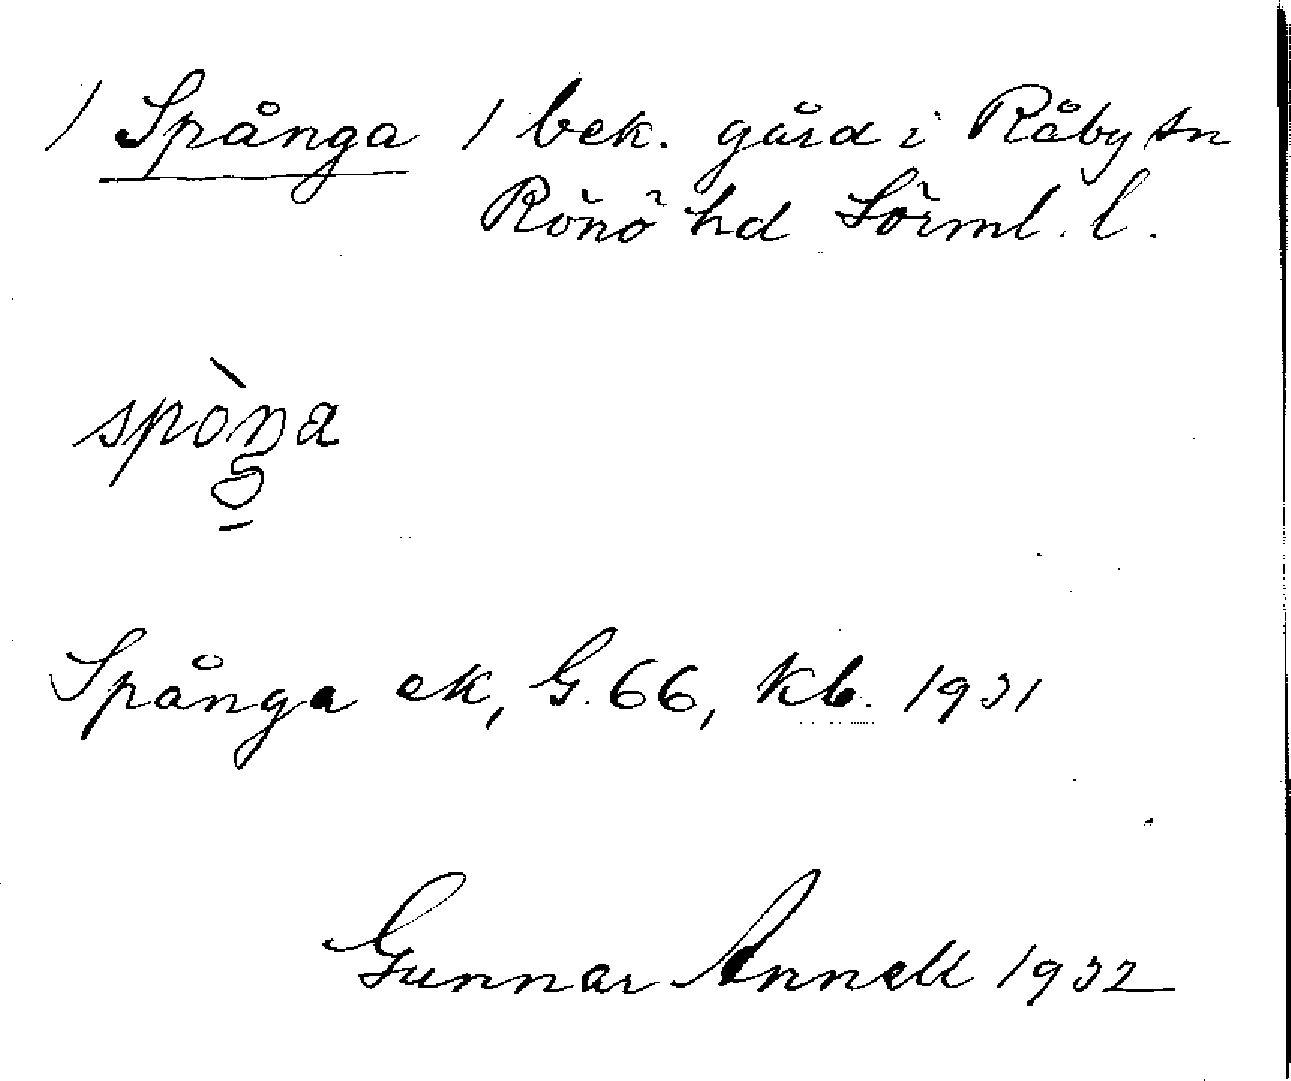 / Spånga / bek. gård i Råby sn
Rönö hd Sörml. l.
spòŋa
Spånga ek, G. 66, kb. 1931
Gunnar Annell 1932